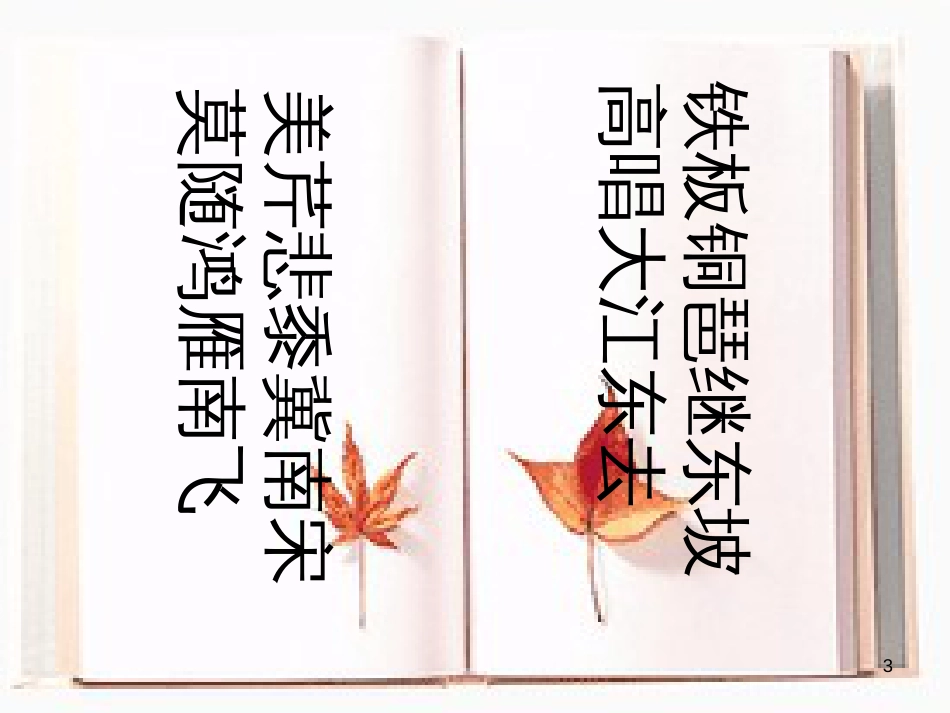 铁板铜琶继东坡
高唱大江东去
美芹悲黍冀南宋
莫随鸿雁南飞
3